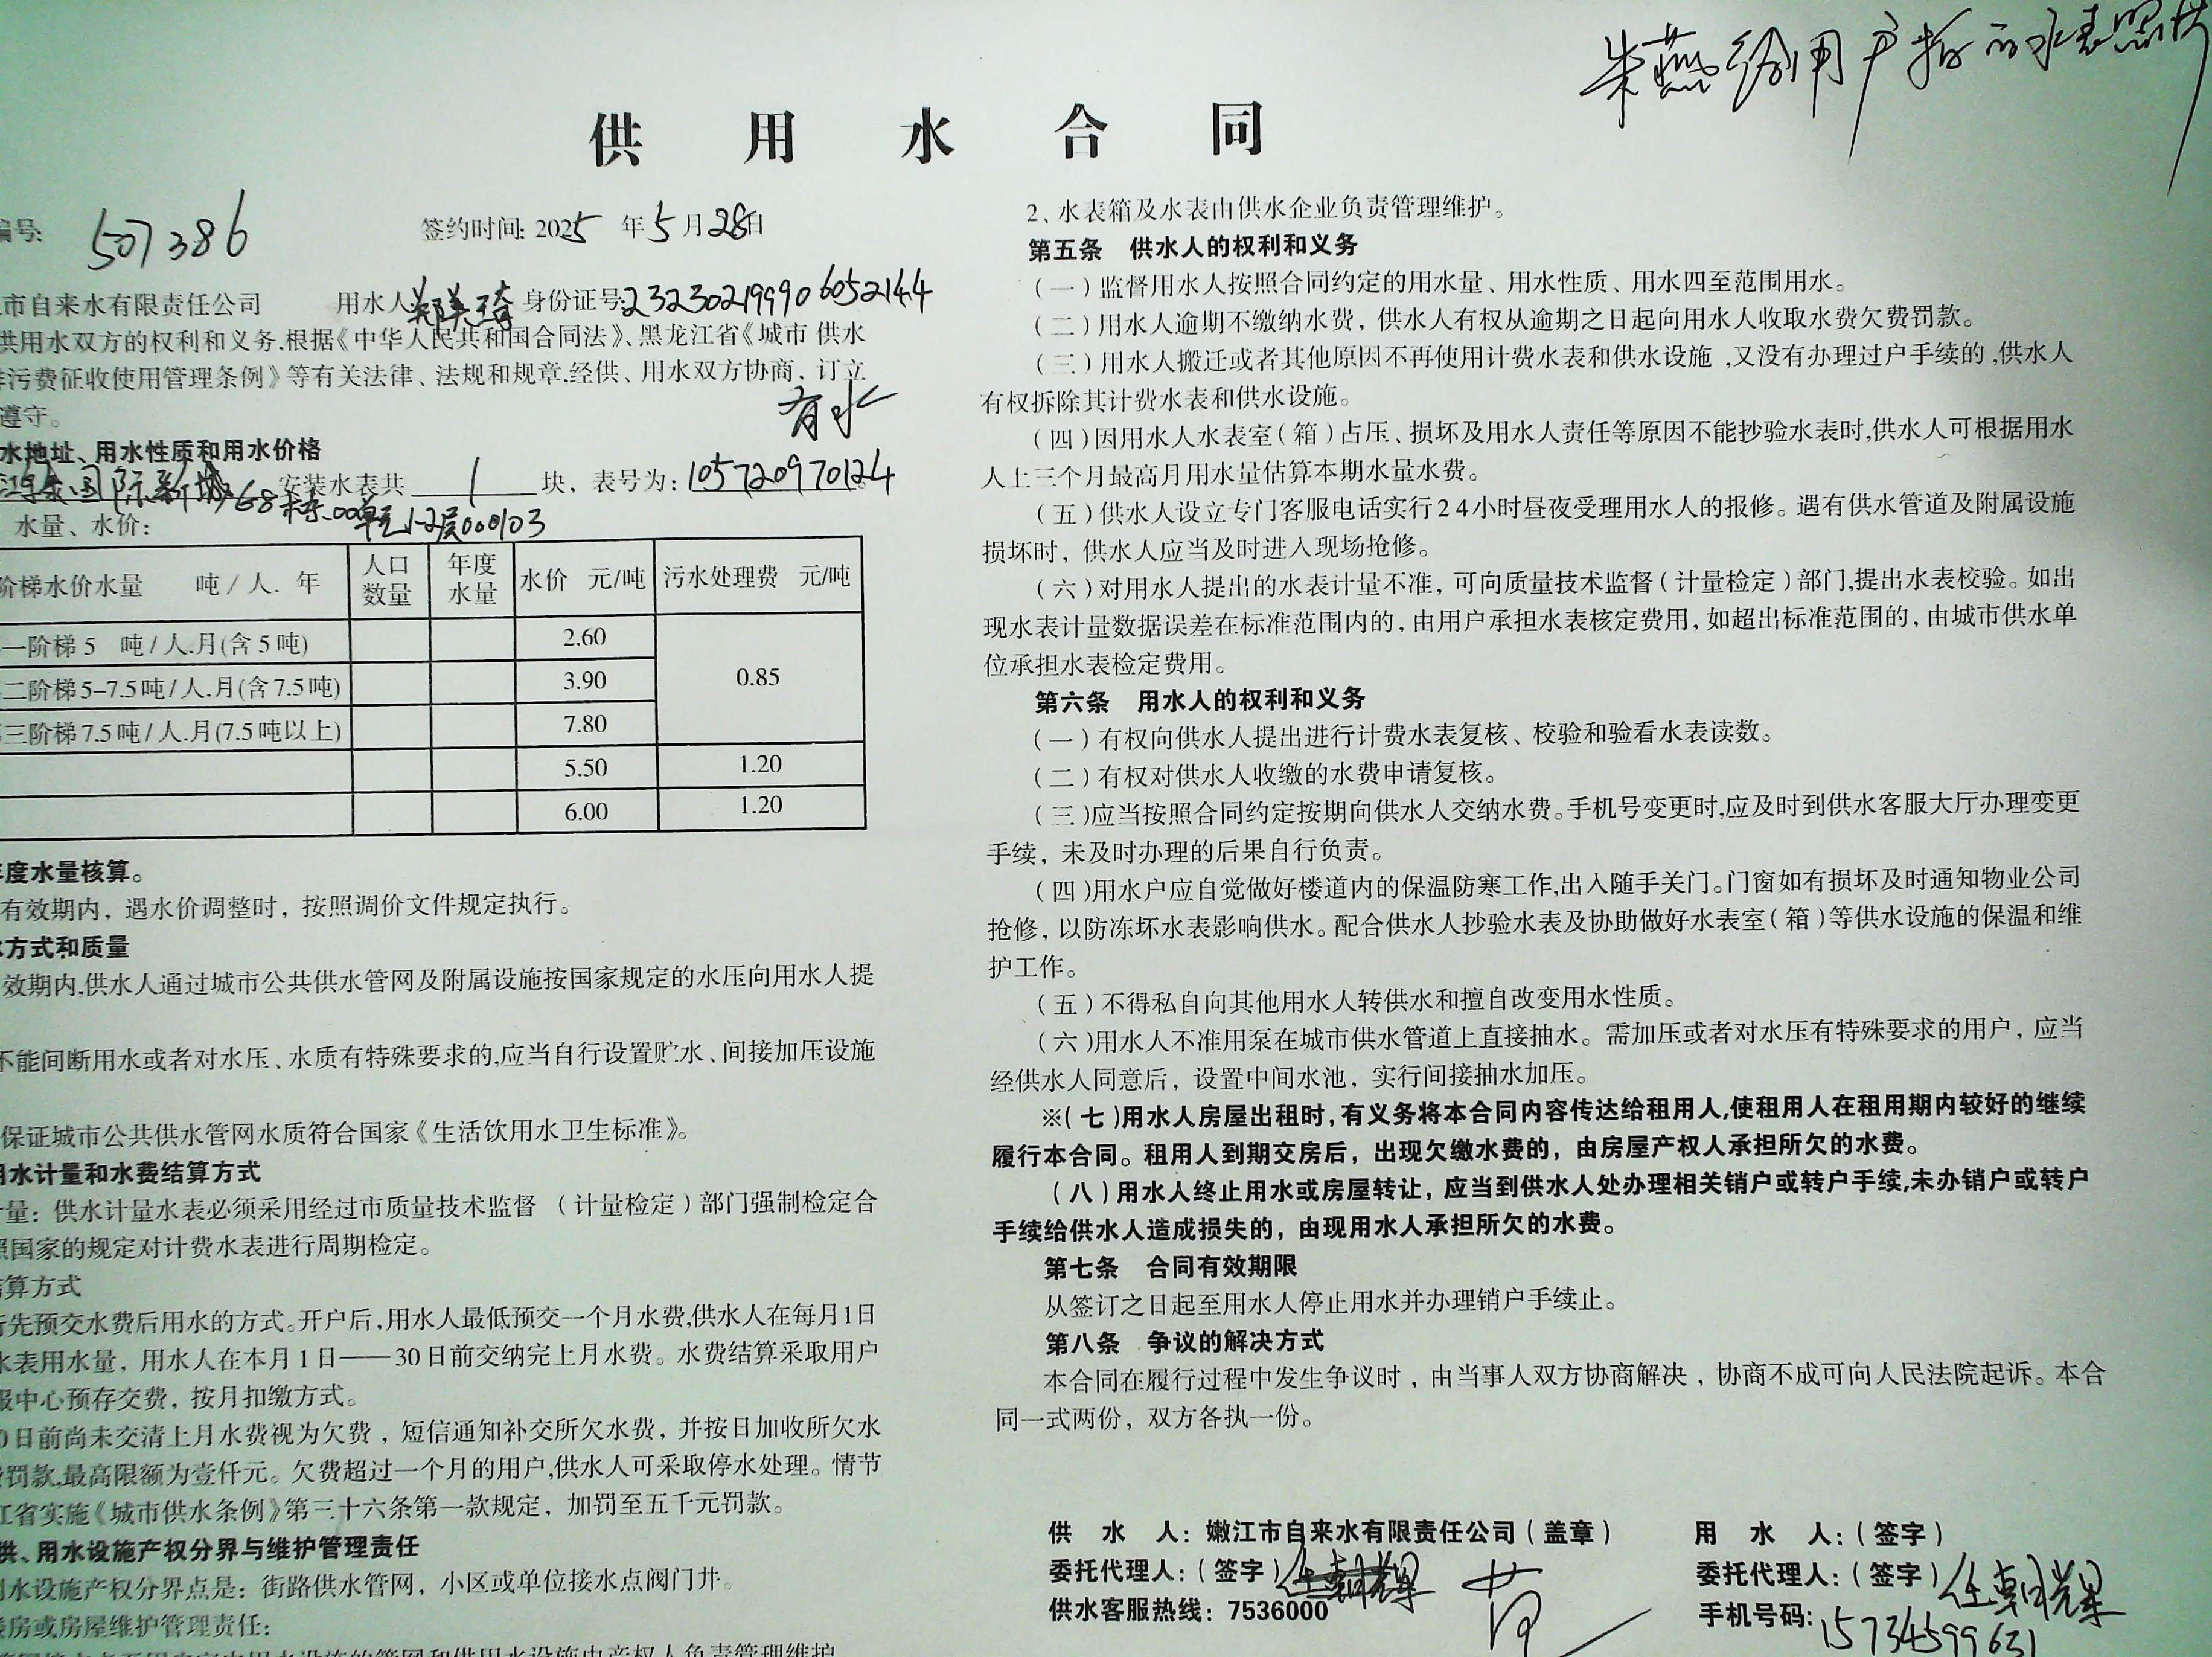 朱燕给用户拍的水表照片
供用水合同
编号: 507386 签约时间: 2025年5月28日
市自来水有限责任公司 用水人 身份证号: 232302199906052144
供用水双方的权利和义务,根据《中华人民共和国合同法》、黑龙江省《城市供水
污费征收使用管理条例》等有关法律、法规和规章,经供、用水双方协商,订立
遵守。
有水
水地址、用水性质和用水价格
国际新城68栋00单元1-2层000103 安装水表共 1 块,表号为: 105720970124
水量、水价:
阶梯水价水量 吨/人.年 人口数量 年度水量 水价 元/吨 污水处理费 元/吨
一阶梯5 吨/人.月(含5吨) 2.60 0.85
二阶梯5-7.5吨/人.月(含7.5吨) 3.90
三阶梯7.5吨/人.月(7.5吨以上) 7.80
5.50 1.20
6.00 1.20
年度水量核算。
有效期内,遇水价调整时,按照调价文件规定执行。
水方式和质量
效期内,供水人通过城市公共供水管网及附属设施按国家规定的水压向用水人提
不能间断用水或者对水压、水质有特殊要求的,应当自行设置贮水、间接加压设施
保证城市公共供水管网水质符合国家《生活饮用水卫生标准》。
用水计量和水费结算方式
量:供水计量水表必须采用经过市质量技术监督(计量检定)部门强制检定合
照国家的规定对计费水表进行周期检定。
结算方式
行先预交水费后用水的方式。开户后,用水人最低预交一个月水费,供水人在每月1日
水表用水量,用水人在本月1日——30日前交纳完上月水费。水费结算采取用户
服中心预存交费,按月扣缴方式。
0日前尚未交清上月水费视为欠费,短信通知补交所欠水费,并按日加收所欠水
罚款,最高限额为壹仟元。欠费超过一个月的用户,供水人可采取停水处理。情节
江省实施《城市供水条例》第三十六条第一款规定,加罚至五千元罚款。
供、用水设施产权分界与维护管理责任
用水设施产权分界点是:街路供水管网,小区或单位接水点阀门井。
楼房或房屋维护管理责任:
2、水表箱及水表由供水企业负责管理维护。
第五条 供水人的权利和义务
(一)监督用水人按照合同约定的用水量、用水性质、用水四至范围用水。
(二)用水人逾期不缴纳水费,供水人有权从逾期之日起向用水人收取水费欠费罚款。
(三)用水人搬迁或者其他原因不再使用计费水表和供水设施,又没有办理过户手续的,供水人
有权拆除其计费水表和供水设施。
(四)因用水人水表室(箱)占压、损坏及用水人责任等原因不能抄验水表时,供水人可根据用水
人上三个月最高月用水量估算本期水量水费。
(五)供水人设立专门客服电话实行24小时昼夜受理用水人的报修。遇有供水管道及附属设施
损坏时,供水人应当及时进入现场抢修。
(六)对用水人提出的水表计量不准,可向质量技术监督(计量检定)部门,提出水表校验。如出
现水表计量数据误差在标准范围内的,由用户承担水表核定费用,如超出标准范围的,由城市供水单
位承担水表检定费用。
第六条 用水人的权利和义务
(一)有权向供水人提出进行计费水表复核、校验和验看水表读数。
(二)有权对供水人收缴的水费申请复核。
(三)应当按照合同约定按期向供水人交纳水费。手机号变更时,应及时到供水客服大厅办理变更
手续,未及时办理的后果自行负责。
(四)用水户应自觉做好楼道内的保温防寒工作,出入随手关门。门窗如有损坏及时通知物业公司
抢修,以防冻坏水表影响供水。配合供水人抄验水表及协助做好水表室(箱)等供水设施的保温和维
护工作。
(五)不得私自向其他用水人转供水和擅自改变用水性质。
(六)用水人不准用泵在城市供水管道上直接抽水。需加压或者对水压有特殊要求的用户,应当
经供水人同意后,设置中间水池,实行间接抽水加压。
※(七)用水人房屋出租时,有义务将本合同内容传达给租用人,使租用人在租用期内较好的继续
履行本合同。租用人到期交房后,出现欠缴水费的,由房屋产权人承担所欠的水费。
(八)用水人终止用水或房屋转让,应当到供水人处办理相关销户或转户手续,未办销户或转户
手续给供水人造成损失的,由现用水人承担所欠的水费。
第七条 合同有效期限
从签订之日起至用水人停止用水并办理销户手续止。
第八条 争议的解决方式
本合同在履行过程中发生争议时,由当事人双方协商解决,协商不成可向人民法院起诉。本合
同一式两份,双方各执一份。
供水人:嫩江市自来水有限责任公司(盖章) 用水人:(签字)
委托代理人:(签字)任朝辉 委托代理人:(签字)任朝辉
供水客服热线:7536000 手机号码:15734599631